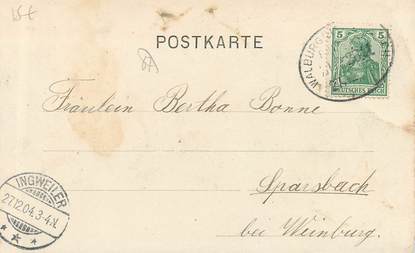 15€
POSTKARTE
5
DEUTSCHES REICH
WALBURG
Fräulein Bertha Bonne
Sparsbach
bei Weinburg.
INGWEILER
27.12.04.3-4.N.